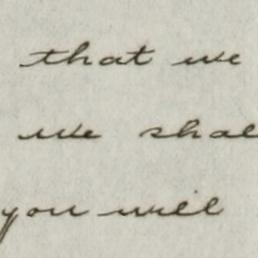 that we
we shal
you will